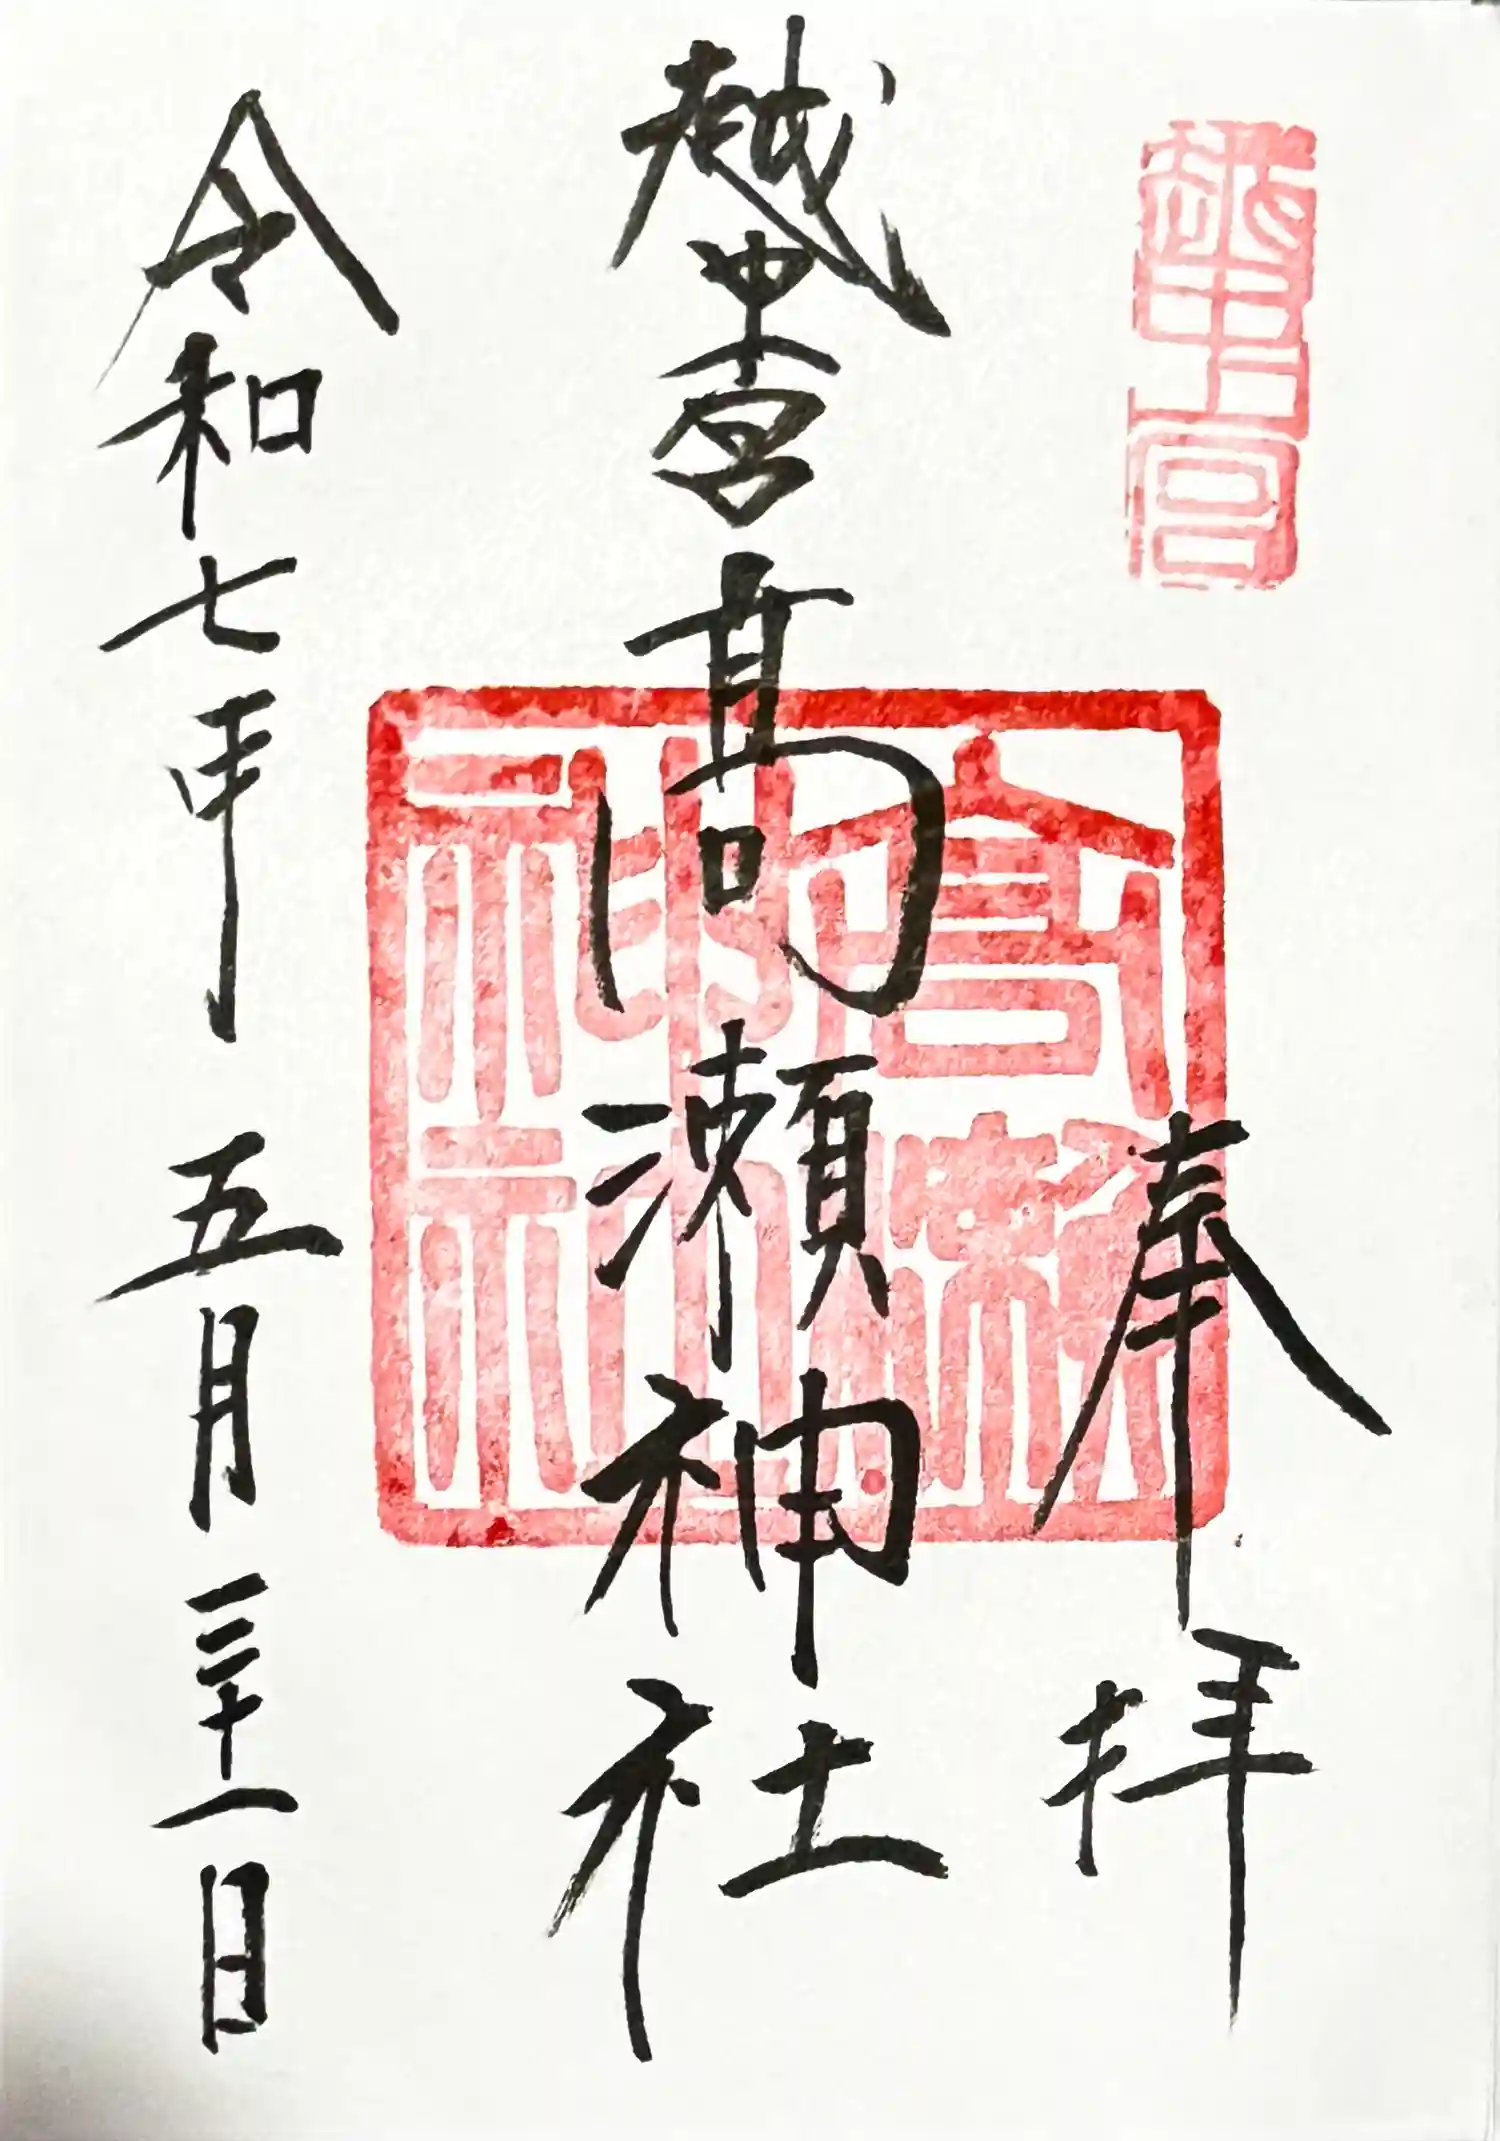 越中一宮
奉拝
越中一宮髙瀬神社
高瀬神社
令和七年五月三十一日